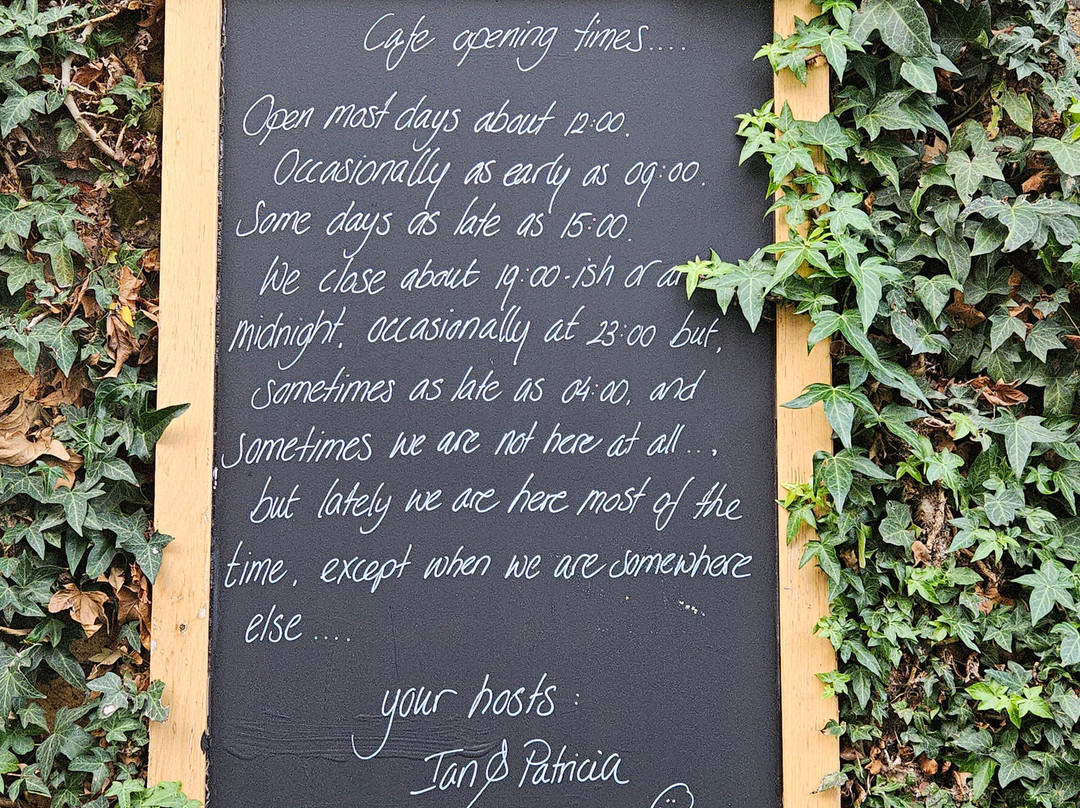 Cafe opening times....
Open most days about 12:00.
Occasionally as early as 09:00.
Some days as late as 15:00.
We close about 19:00-ish or
midnight, occasionally at 23:00 but,
sometimes as late as 04:00, and
sometimes we are not here at all...,
but lately we are here most of the
time, except when we are somewhere
else....
your hosts:
Ian & Patricia